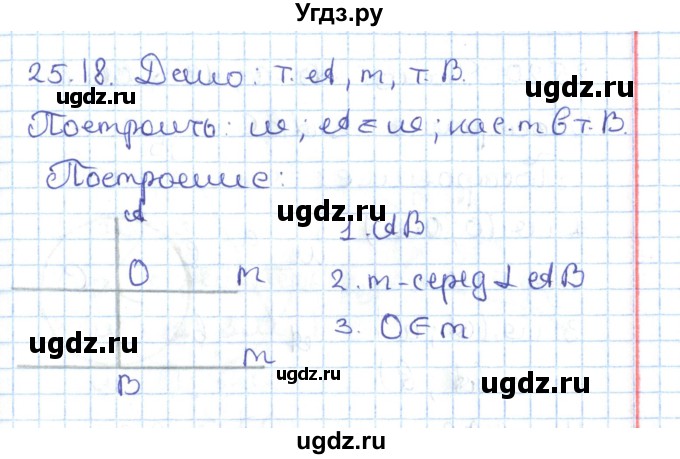 Угдз.ру
25.18. Дано: т. A, m, т. B.
ugdz.ru
ugdz.ru
Построить: ; A ∈ ; кас. m в т. B.
Построение:
ugdz.ru
ugdz.ru
A
1. AB
O m
2. m-серед ⊥ AB
3. O ∈ m
ugdz.ru
ugdz.ru
ugdz.ru
m
B
ugdz.ru